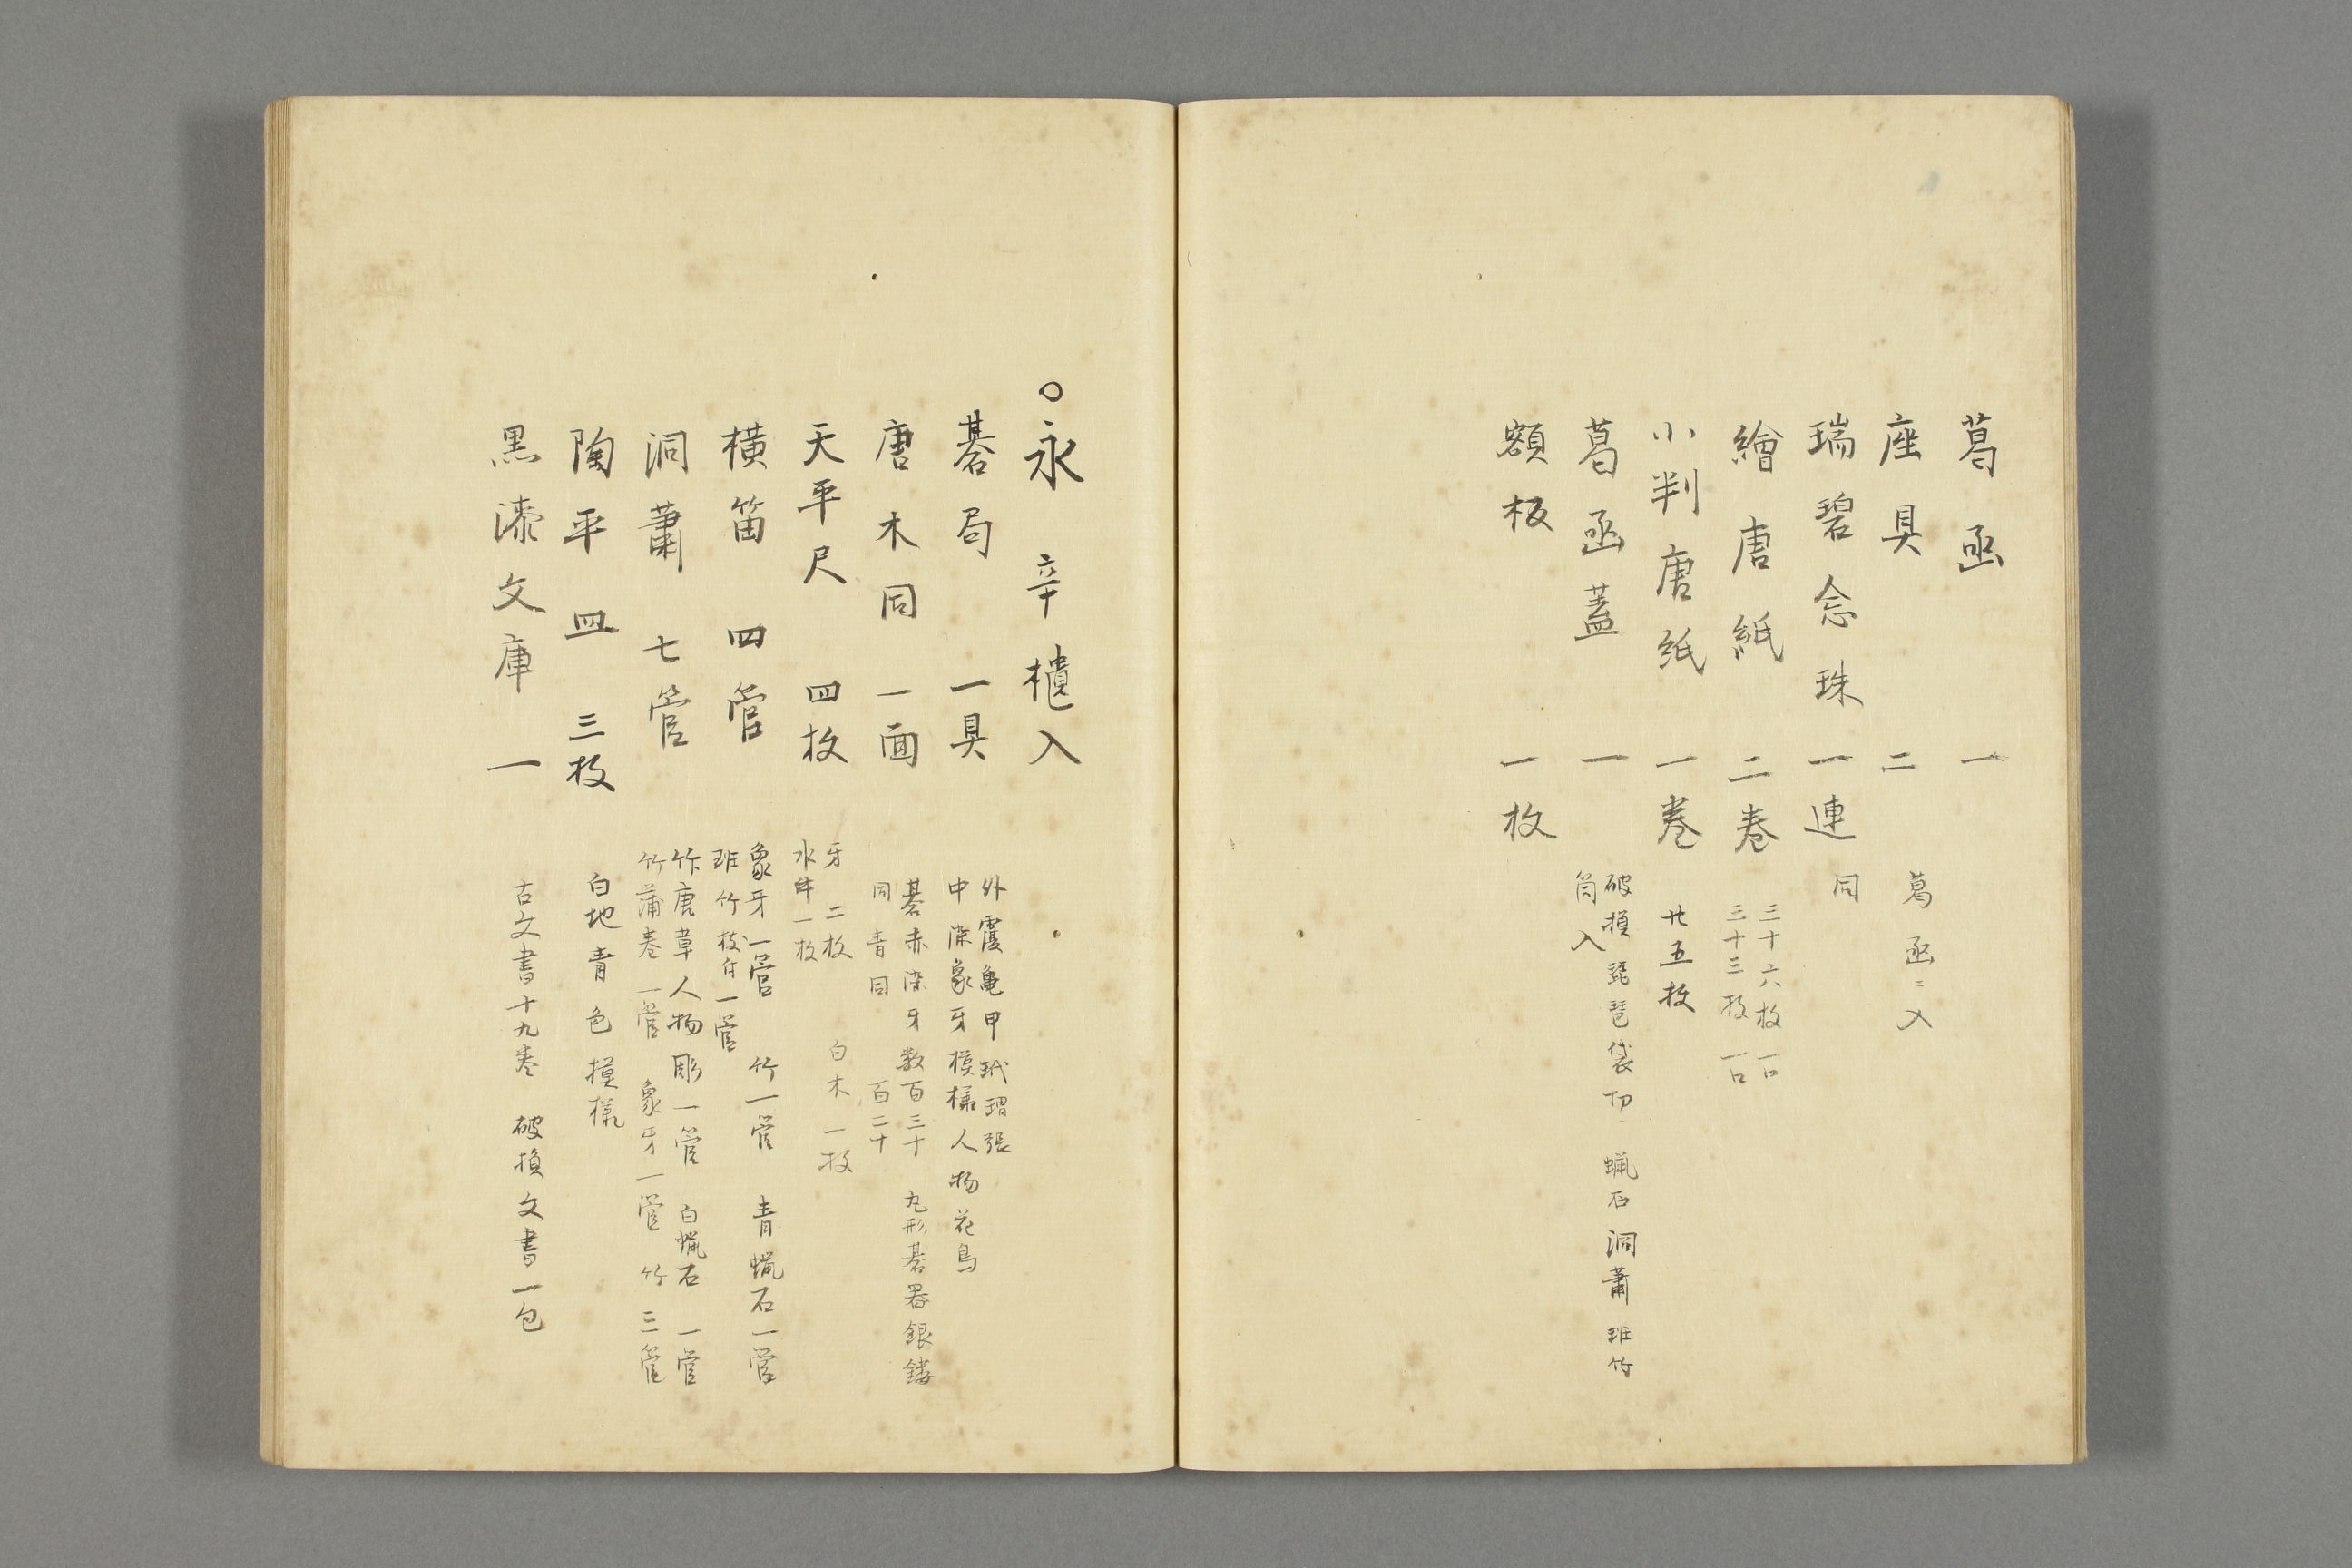 葛函 一
座具 二 葛函ニ入
瑞碧念珠 一連 同
繪唐紙 二巻 三十六枚 一口
三十三枚 一口
小判唐紙 一巻 廿五枚
葛函蓋 一 破損琵琶袋切 蝋石洞萧 班竹
筒入
額板 一枚
○永 辛櫃入
碁局 一具 外覆亀甲玳瑁張
中染象牙模様人物花鳥
唐木同 一面 碁赤染牙数百三十 丸形碁器銀鏤
同青同 百二十
天平尺 四枚 牙 二枚 白木一枚
水牛一枚
横笛 四管 象牙一管 竹一管 青蝋石一管
班竹枝付一管
洞萧 七管 竹唐草人物彫一管 白蝋石一管
竹蒲巻一管 象牙一管 竹三管
陶平皿 三枚 白地青色模様
黒漆文庫 一 古文書十九巻 破損文書一包